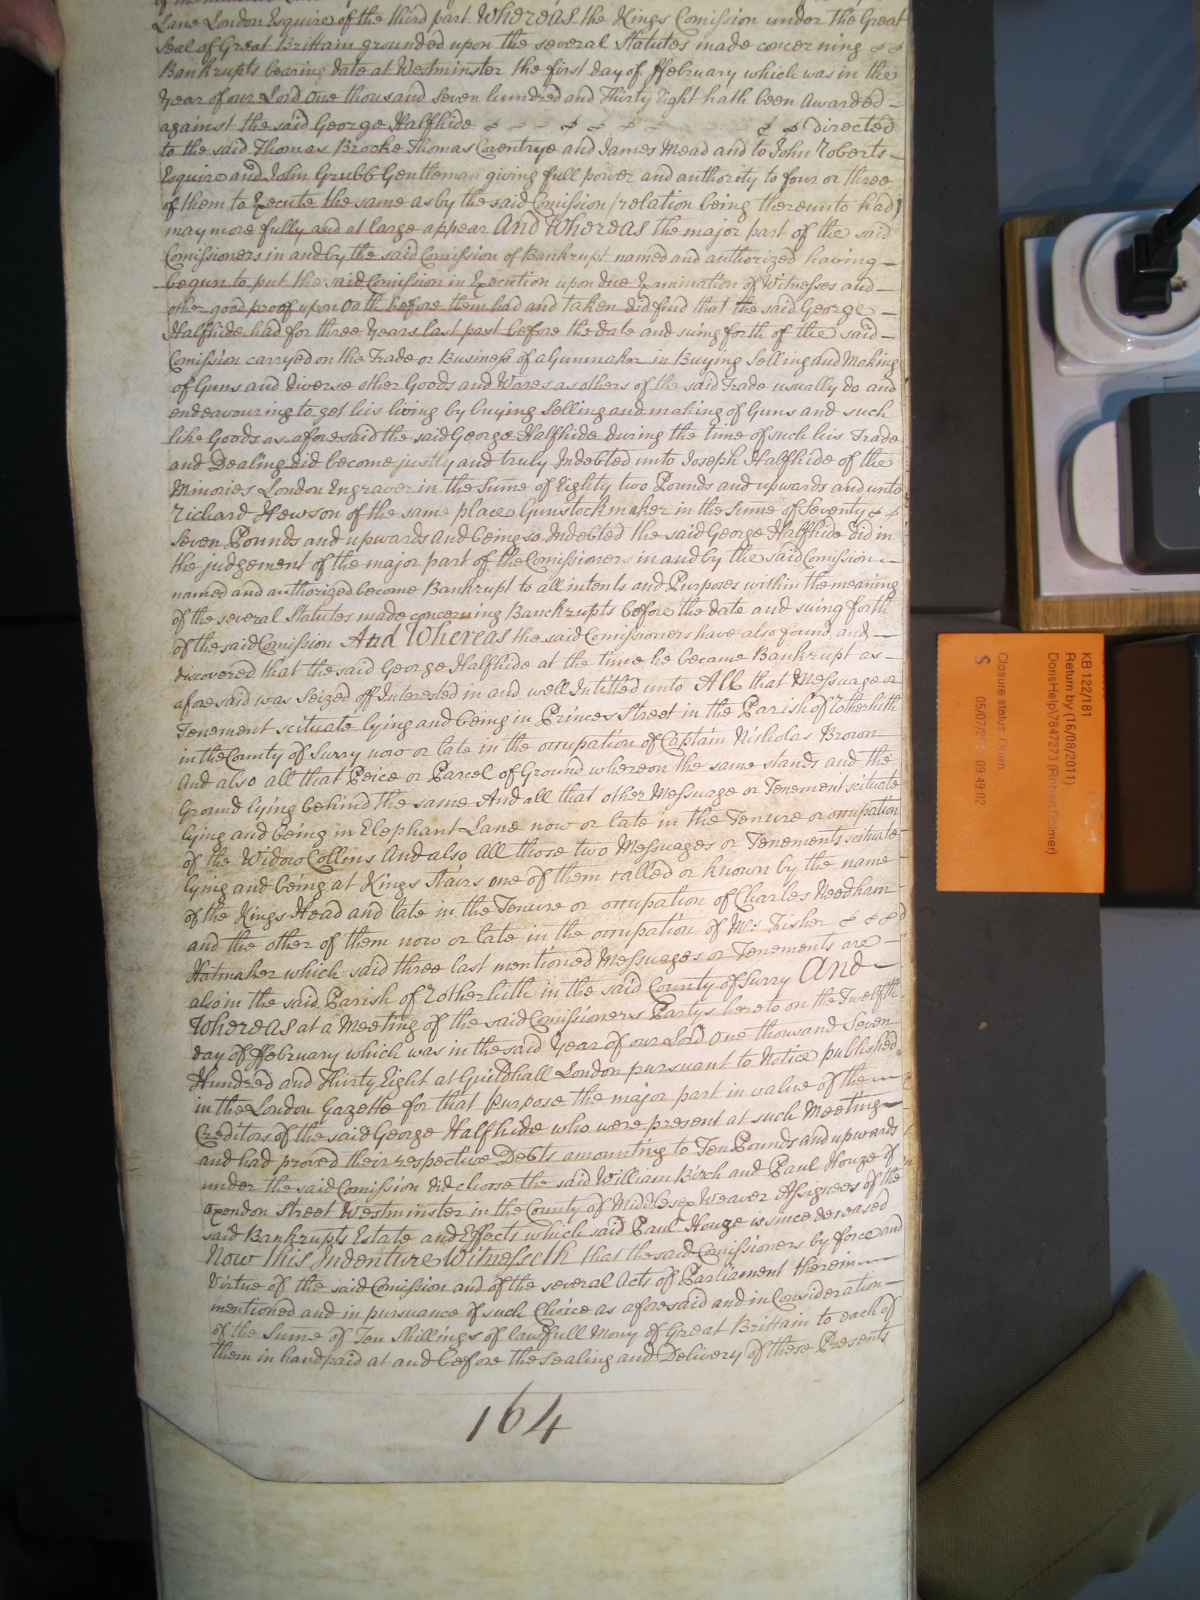 Lane London Esquire of the third part Whereas the Kings Comission under the Great
Seal of Great Brittain grounded upon the several Statutes made concerning
Bankrupts bearing date at Westminster the first day of ffebruary which was in the
Year of our Lord One thousand Seven hundred and Thirty Eight hath been Awarded
against the said George Halfhide directed
to the said Thomas Brooke Thomas Coventrye and James Mead and to John Roberts
Esquire and John Grubb Gentleman giving full power and authority to four or three
of them to Execute the same as by the said Comission (relation being thereunto had)
may more fully and at large appear And Whereas the major part of the said
Comissioners in and by the said Comission of Bankrupt named and authorized having
begun to put the said Comission in Execution upon due Examination of Witnesses and
other good proof upon Oath before them had and taken did find that the said George
Halfhide had for three Years last past before the date and suing forth of the said
Comission carryed on the Trade or Business of a Gunmaker in Buying Selling and Making
of Guns and diverse other Goods and Wares as others of the said Trade usually do and
endeavouring to get his living by buying Selling and making of Guns and such
like Goods as aforesaid the said George Halfhide during the time of such his Trade
and Dealing did become justly and truly Indebted unto Joseph Halfhide of the
Minories London Engraver in the Sume of Eighty two Pounds and upwards and unto
Richard Hewson of the same place Gunstockmaker in the Sume of Seventy
Seven Pounds and upwards And being so Indebted the said George Halfhide did in
the judgement of the major part of the Comissioners in and by the said Comission
named and authorized become Bankrupt to all intents and Purposes within the meaning
of the several Statutes made concerning Banckrupts before the date and suing forth
of the said Comission And Whereas the said Comissioners have also found and
discovered that the said George Halfhide at the time he became Bankrupt as
aforesaid was Seized off Interested in and well Intitled unto All that Messuage or
Tenement scituate lying and being in Princes Street in the Parish of Rotherhith
in the County of Surry now or late in the occupation of Captain Nicholas Brown
And also all that Peice or Parcel of Ground whereon the same stands and the
Ground lying behind the same And all that other Messuage or Tenement scituate
lying and being in Elephant Lane now or late in the Tenure or occupation
of the Widow Collens And also All those two Messuages or Tenements scituate
lying and being at Kings Stairs one of them called or known by the name
of the Kings Head and late in the Tenure or occupation of Charles Needham
and the other of them now or late in the occupation of Mr. Fisher
Hatmaker which said three last mentioned Messuages or Tenements are
also in the said Parish of Rotherhith in the said County of Surry And
Whereas at a Meeting of the said Comissioners Partys hereto on the Twelfth
day of ffebruary which was in the said Year of our Lord One thousand Seven
Hundred and Thirty Eight at Guildhall London pursuant to Notice published
in the London Gazette for that Purpose the major part in value of the
Creditors of the said George Halfhide who were present at such Meeting
and had proved their respective Debts amounting to Ten Pounds and upwards
under the said Comission did choose the said William Birch and Paul Houze of
Oxendon Street Westminster in the County of Middlesex Weaver Assignees of the
said Bankrupts Estate and Effects which said Paul Houze is since deceased
Now this Indenture Witnesseth that the said Comissioners by force and
Virtue of the said Comission and of the several Acts of Parliament therein
mentioned and in pursuance of such Choice as aforesaid and in Consideration
of the Sume of Ten Shillings of lawfull Mony of Great Brittain to each of
them in hand paid at and before the Sealing and Delivery of these Presents
164
KB 122/181
Return by (16/08/2011)
Closure status Open
S 05/07/20 09:49:02